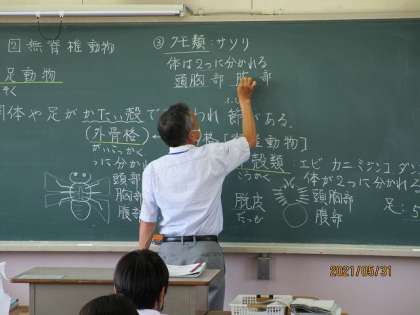 ② 無脊椎動物
足動物
そく
胴体や足がかたい殻で
われ 節がある。
(外骨格)
がいこっかく
つに分かれ
頭部
胸部
腹部
③ クモ類:サソリ
体は2つに分かれる
頭胸部 腹部
動物]
殻類:エビ カニ ミジンコ ダン
こうかく
体が2つに分かれ
脱皮
だっぴ
頭胸部
腹部
足:5
2021/05/31